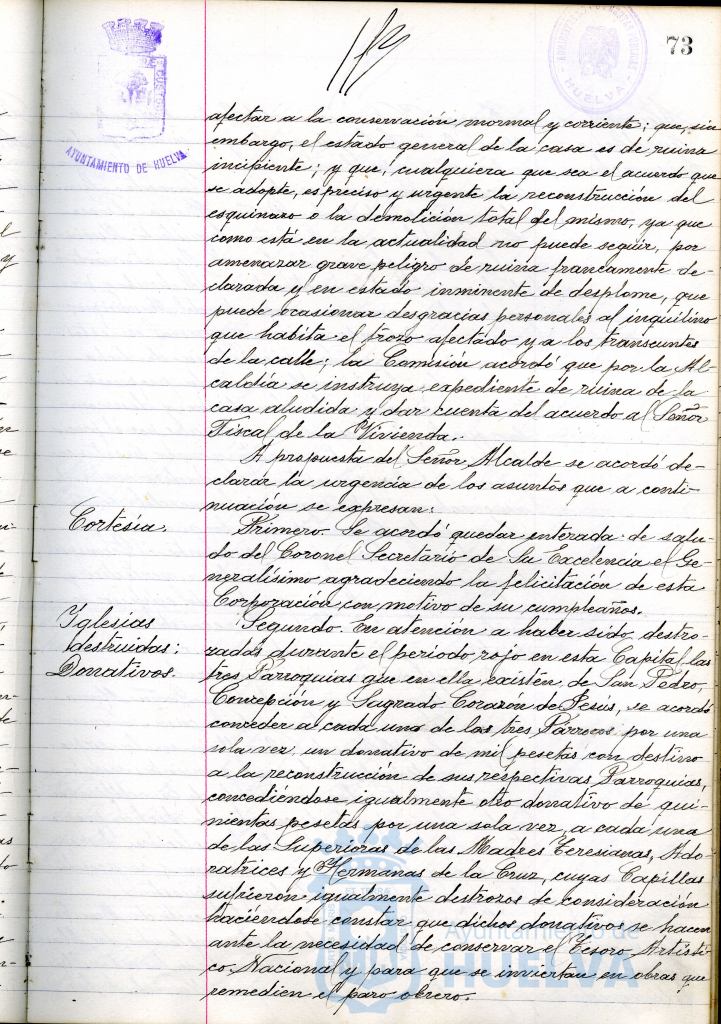 73
AYUNTAMIENTO DE HUELVA
HUELVA
afectar a la conservación normal y corriente; que, sin
embargo, el estado general de la casa es de ruina
incipiente; y que, cualquiera que sea el acuerdo que
se adopte, es preciso y urgente la reconstrucción del
esquinazo o la demolición total del mismo, ya que
como está en la actualidad no puede seguir, por
amenazar grave peligro de ruina francamente de-
clarada y en estado inminente de desplome, que
puede ocasionar desgracias personales al inquilino
que habita el trozo afectado y a los transeuntes
de la calle; la Comisión acordó que por la Al-
caldía se instruya expediente de ruina de la
casa aludida y dar cuenta del acuerdo al Señor
Fiscal de la Vivienda.
A propuesta del Señor Alcalde se acordó de-
clarar la urgencia de los asuntos que a conti-
nuación se expresan:
Cortesía.
Primero. Se acordó quedar enterada de salu-
do del Coronel Secretario de Su Excelencia el Ge-
neralísimo agradeciendo la felicitación de esta
Corporación con motivo de su cumpleaños.
Iglesias
destruidas:
Donativos.
Segundo. En atención a haber sido destro-
zadas durante el período rojo en esta Capital las
tres Parroquias que en ella existen, de San Pedro,
Concepción y Sagrado Corazón de Jesus, se acordó
conceder a cada uno de los tres Párrocos por una
sola vez, un donativo de mil pesetas con destino
a la reconstrucción de sus respectivas Parroquias,
concediéndose igualmente otro donativo de qui-
nientas pesetas por una sola vez, a cada una
de las Superioras de las Madres Teresianas, Ado-
ratrices y Hermanas de la Cruz, cuyas Capillas
sufrieron igualmente destrozos de consideración
haciéndose constar que dichos donativos se hacen
ante la necesidad de conservar el Tesoro Artísti-
co Nacional y para que se inviertan en obras que
remedien el paro obrero.
Ayuntamiento de
HUELVA